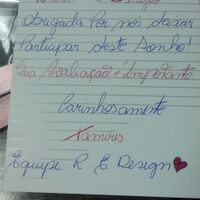 Obrigada Por nós deixar
Participar deste sonho!
Sua Avaliação é Importante
Carinhosamente
Tamires
Equipe R E Design